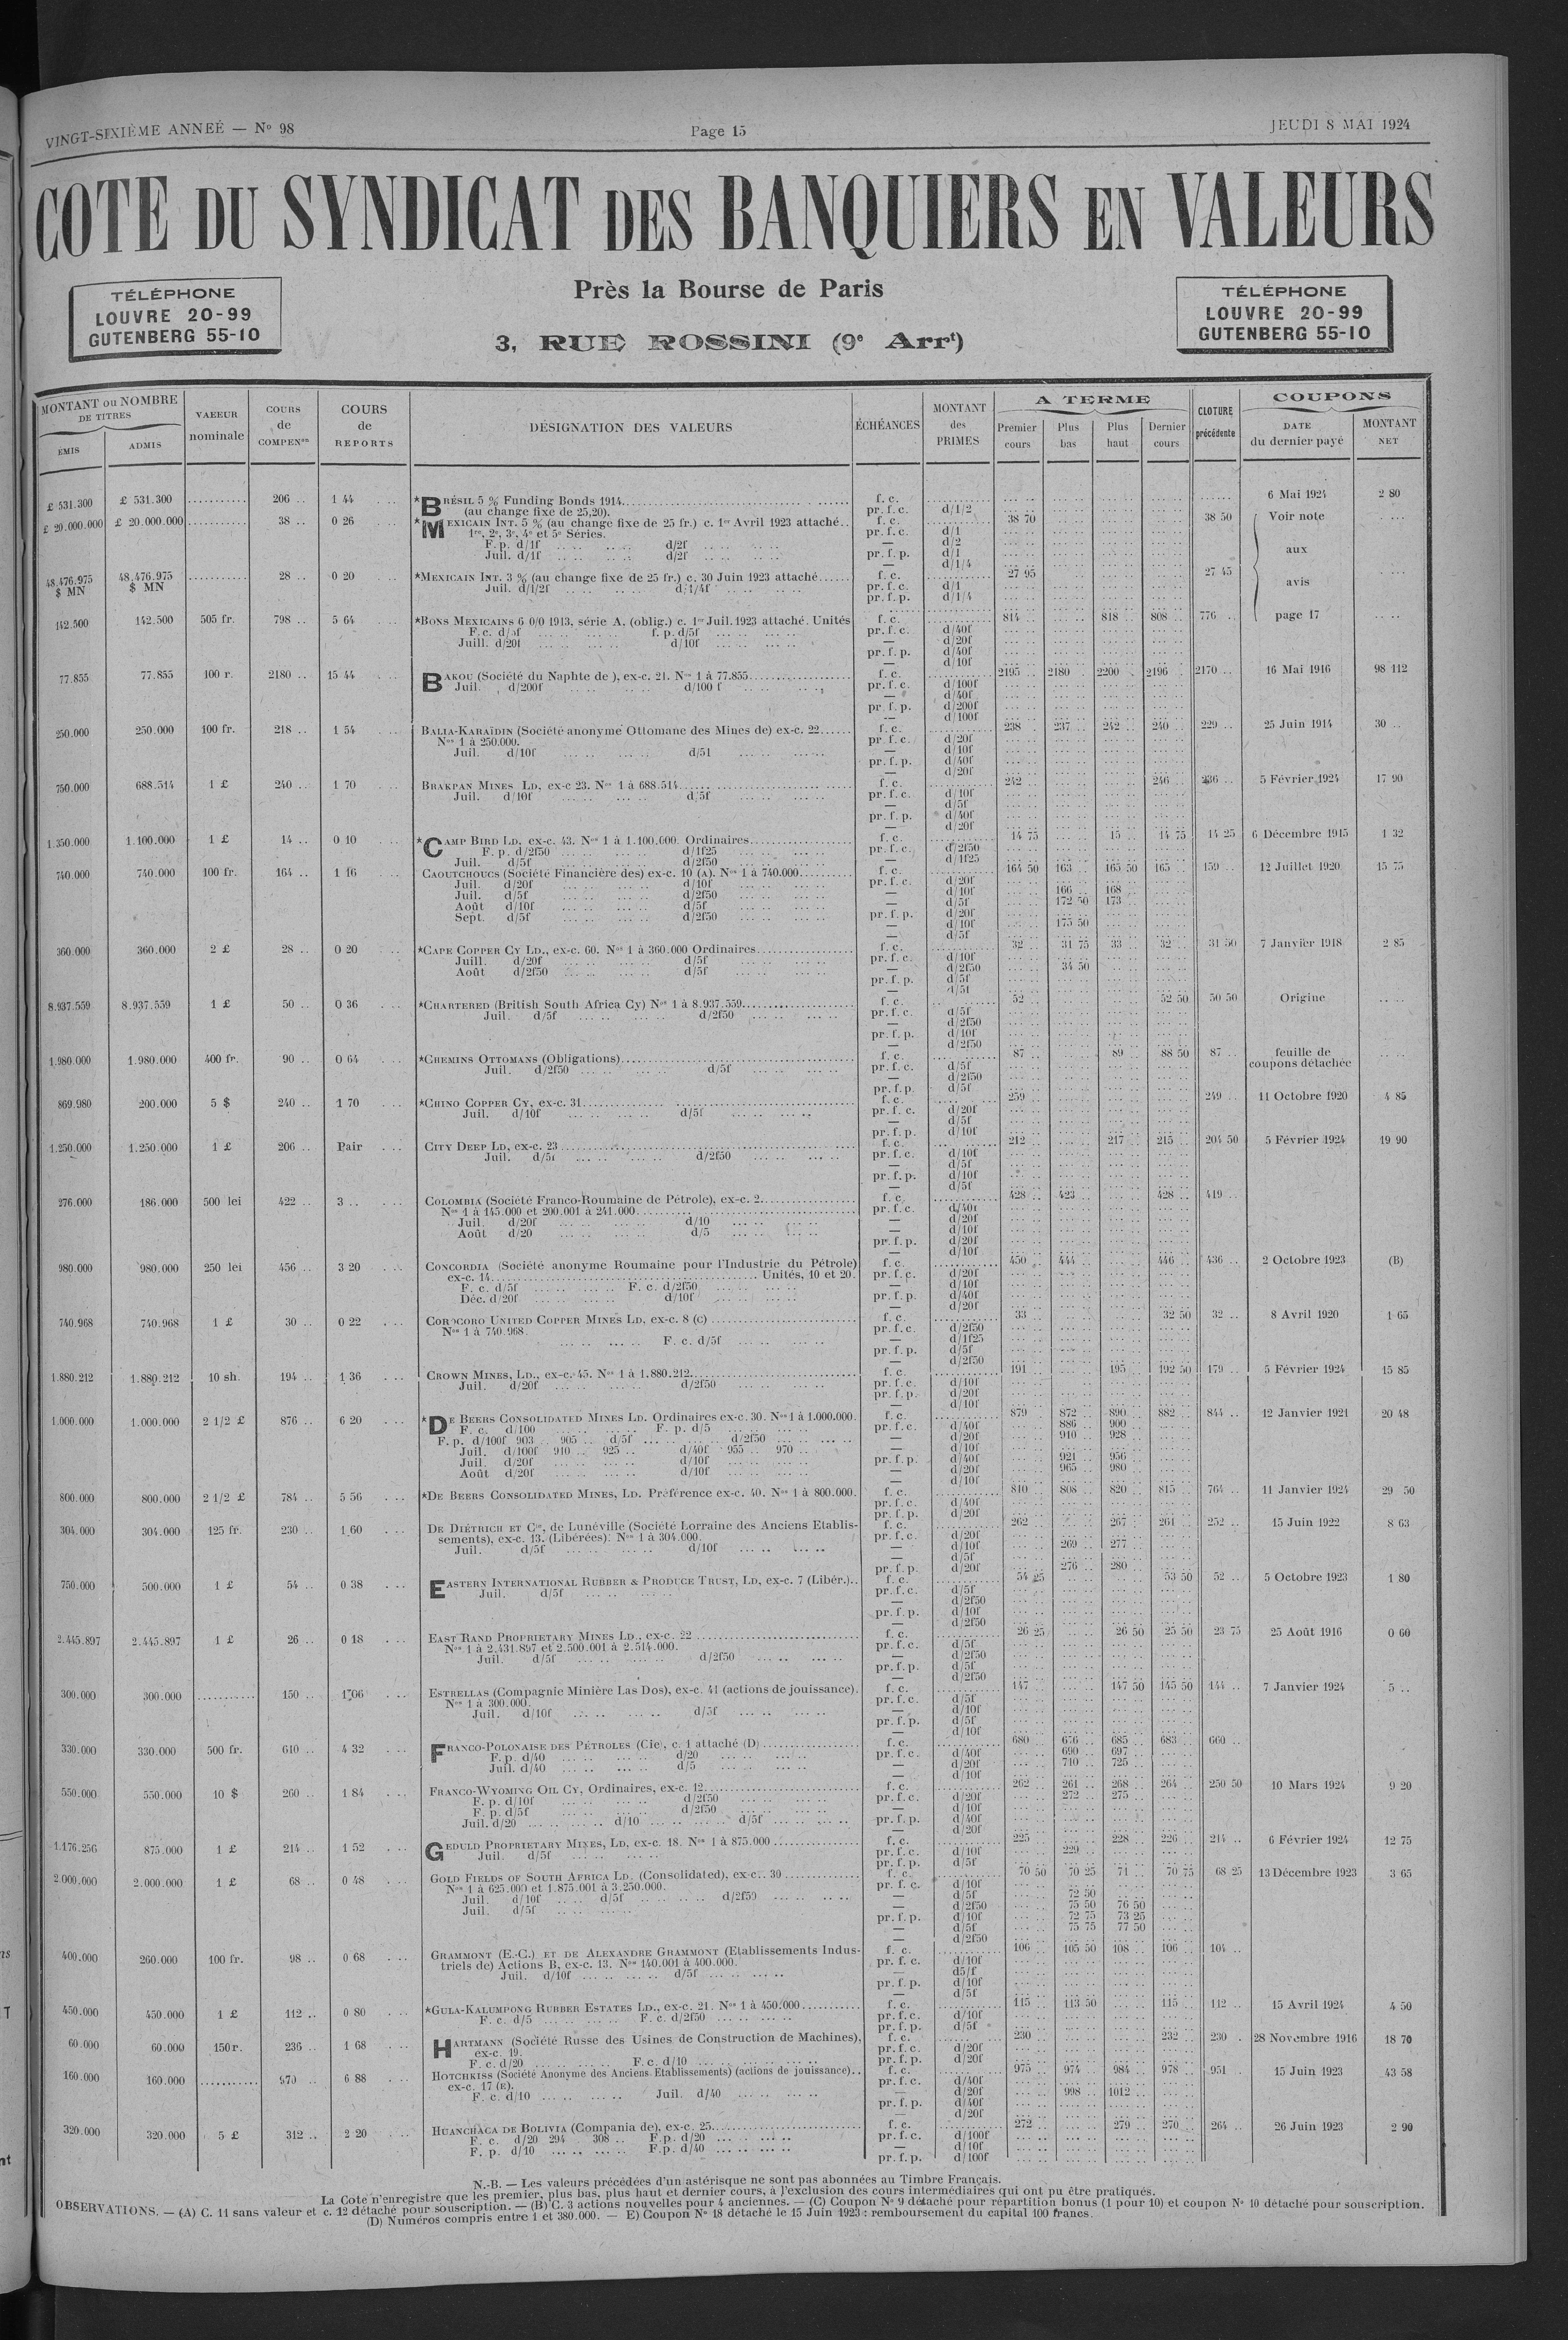 VINGT-SIXIÈME ANNEÉ — Nº 98
Page 15
JEUDI 8 MAI 1924
COTE DU SYNDICAT DES BANQUIERS EN VALEURS
TÉLÉPHONE
LOUVRE 20-99
GUTENBERG 55-10
Près la Bourse de Paris
3, RUE ROSSINI (9e Arrt)
TÉLÉPHONE
LOUVRE 20-99
GUTENBERG 55-10
MONTANT ou NOMBRE DE TITRES
ÉMIS
ADMIS
VALEUR nominale
COURS de COMPENon
COURS de REPORTS
DÉSIGNATION DES VALEURS
ÉCHÉANCES
MONTANT des PRIMES
A TERME
Premier cours
Plus bas
Plus haut
Dernier cours
CLOTURE précédente
COUPONS
DATE du dernier payé
MONTANT NET
£ 531.300 £ 531.300 ........... 206 .. 1 44 *BRÉSIL 5 % Funding Bonds 1914 f. c. 6 Mai 1924 2 80
(au change fixe de 25,20). pr. f. c. d/1/2
£ 20.000.000 £ 20.000.000 ........... 38 .. 0 26 *MEXICAIN INT. 5 % (au change fixe de 25 fr.) c. 1er Avril 1923 attaché.. f. c. 38 70 38 50 Voir note
1re, 2e, 3e, 4e et 5e Séries. pr. f. c. d/1
F. p. d/1f .. .. .. .. d/2f — d/2
Juil. d/1f .. .. .. .. d/2f pr. f. p. d/1 aux
— d/1/4
48.476.975 $ MN 48.476.975 $ MN ........... 28 .. 0 20 *MEXICAIN INT. 3 % (au change fixe de 25 fr.) c. 30 Juin 1923 attaché f. c. 27 95 27 45 avis
Juil. d/1/2f .. .. .. .. d/1/4f pr. f. c. d/1
pr. f. p. d/1/4
142.500 142.500 505 fr. 798 .. 5 64 *BONS MEXICAINS 6 0/0 1913, série A, (oblig.) c. 1er Juil. 1923 attaché. Unités f. c. 814 .. 818 .. 808 .. 776 .. page 17
F. c. d/5f f. p. d/5f pr. f. c. d/40f
Juill. d/20f d/10f — d/20f
pr. f. p. d/40f
— d/10f
77.855 77.855 100 r. 2180 .. 15 44 BAKOU (Société du Naphte de ), ex-c. 21. Nos 1 à 77.855 f. c. 2195 .. 2180 .. 2200 .. 2196 .. 2170 .. 16 Mai 1916 98 112
Juil. d/200f d/100 f pr. f. c. d/100f
— d/40f
pr. f. p. d/200f
— d/100f
250.000 250.000 100 fr. 218 .. 1 54 BALIA-KARAÏDIN (Société anonyme Ottomane des Mines de) ex-c. 22 f. c. 238 .. 237 .. 242 .. 240 .. 229 .. 25 Juin 1914 30 ..
Nos 1 à 250.000. pr. f. c. d/20f
Juil. d/10f d/51 — d/10f
pr. f. p. d/40f
— d/20f
750.000 688.514 1 £ 240 .. 1 70 BRAKPAN MINES LD, ex-c 23. Nos 1 à 688.514 f. c. 242 .. 246 .. 236 .. 5 Février 1924 17 90
Juil. d/10f d/5f pr. f. c. d/10f
— d/5f
pr. f. p. d/40f
— d/20f
1.350.000 1.100.000 1 £ 14 .. 0 10 *CAMP BIRD LD, ex-c. 43. Nos 1 à 1.100.000. Ordinaires f. c. 14 75 15 .. 14 75 14 25 6 Décembre 1915 1 32
F. p. d/2f50 d/1f25 pr. f. c. d/2f50
Juil. d/5f d/2f50 — d/1f25
740.000 740.000 100 fr. 164 .. 1 16 CAOUTCHOUCS (Société Financière des) ex-c. 10 (A). Nos 1 à 740.000 f. c. 164 50 163 .. 165 50 165 .. 159 .. 12 Juillet 1920 15 75
Juil. d/20f d/10f pr. f. c. d/20f
Juil. d/5f d/2f50 — d/10f 166 .. 168 ..
Août d/10f d/5f — d/5f 172 50 173 ..
Sept. d/5f d/2f50 pr. f. p. d/20f
— d/10f 175 50
— d/5f
360.000 360.000 2 £ 28 .. 0 20 *CAPE COPPER CY LD., ex-c. 60. Nos 1 à 360.000 Ordinaires f. c. 32 .. 31 75 33 .. 32 .. 31 50 7 Janvier 1918 2 85
Juill. d/20f d/5f pr. f. c. d/10f
Août d/2f50 d/5f — d/2f50 34 50
pr. f. p. d/5f
— d/5f
8.937.559 8.937.559 1 £ 50 .. 0 36 *CHARTERED (British South Africa Cy) Nos 1 à 8.937.559 f. c. 52 .. 52 50 50 50 Origine
Juil. d/5f d/2f50 pr. f. c. d/5f
— d/2f50
pr. f. p. d/10f
— d/2f50
1.980.000 1.980.000 400 fr. 90 .. 0 64 *CHEMINS OTTOMANS (Obligations) f. c. 87 .. 89 .. 88 50 87 .. feuille de
Juil. d/2f50 d/5f pr. f. c. d/5f coupons détachée
— d/2f50
pr. f. p. d/5f
869.980 200.000 5 $ 240 .. 1 70 *CHINO COPPER CY, ex-c. 31 f. c. 259 .. 249 .. 11 Octobre 1920 4 85
Juil. d/10f d/5f pr. f. c. d/20f
— d/5f
pr. f. p. d/10f
1.250.000 1.250.000 1 £ 206 .. Pair CITY DEEP LD, ex-c. 23 f. c. 212 .. 217 .. 215 .. 204 50 5 Février 1924 19 90
Juil. d/5f d/2f50 pr. f. c. d/10f
— d/5f
pr. f. p. d/10f
— d/5f
276.000 186.000 500 lei 422 .. 3 .. COLOMBIA (Société Franco-Roumaine de Pétrole), ex-c. 2 f. c. 428 .. 423 .. 428 .. 419 ..
Nos 1 à 145.000 et 200.001 à 241.000 pr. f. c. d/40f
Juil. d/20f d/10 — d/20f
Août d/20 d/5 — d/10f
pr. f. p. d/20f
— d/10f
980.000 980.000 250 lei 456 .. 3 20 CONCORDIA (Société anonyme Roumaine pour l'Industrie du Pétrole) f. c. 450 .. 444 .. 446 .. 436 .. 2 Octobre 1923 (B)
ex-c. 14 Unités, 10 et 20. pr. f. c. d/20f
F. c. d/5f F. c. d/2f50 — d/10f
Déc. d/20f d/10f pr. f. p. d/40f
— d/20f
740.968 740.968 1 £ 30 .. 0 22 COROCORO UNITED COPPER MINES LD, ex-c. 8 (C) f. c. 33 .. 32 50 32 .. 8 Avril 1920 1 65
Nos 1 à 740.968. pr. f. c. d/2f50
F. c. d/5f — d/1f25
pr. f. p. d/5f
— d/2f50
1.880.212 1.880.212 10 sh. 194 .. 1 36 CROWN MINES, LD., ex-c. 45. Nos 1 à 1.880.212 f. c. 191 .. 195 .. 192 50 179 .. 5 Février 1924 15 85
Juil. d/20f d/2f50 pr. f. c. d/10f
pr. f. p. d/20f
— d/10f
1.000.000 1.000.000 2 1/2 £ 876 .. 6 20 *DE BEERS CONSOLIDATED MINES LD. Ordinaires ex-c. 30. Nos 1 à 1.000.000. f. c. 879 .. 872 .. 890 .. 882 .. 844 .. 12 Janvier 1921 20 48
F. c. d/100 F. p. d/5 pr. f. c. d/40f 886 .. 900 ..
F. p. d/100f 903 .. 905 .. d/5f d/2f50 — d/20f 910 .. 928 ..
Juil. d/100f 910 .. 925 .. d/40f 955 .. 970 .. — d/10f
Juil. d/20f d/10f pr. f. p. d/40f 921 .. 956 ..
Août d/20f d/10f — d/20f 965 .. 980 ..
— d/10f
800.000 800.000 2 1/2 £ 784 .. 5 56 *DE BEERS CONSOLIDATED MINES, LD. Préférence ex-c. 40. Nos 1 à 800.000. f. c. 810 .. 808 .. 820 .. 815 .. 764 .. 11 Janvier 1924 29 50
pr. f. c. d/40f
pr. f. p. d/20f
304.000 304.000 125 fr. 230 .. 1 60 DE DIÉTRICH ET Cie, de Lunéville (Société Lorraine des Anciens Etablis- f. c. 262 .. 267 .. 261 .. 252 .. 15 Juin 1922 8 63
sements), ex-c. 13. (Libérées). Nos 1 à 304.000. pr. f. c. d/20f
Juil. d/5f d/10f — d/10f 269 .. 277 ..
— d/5f
pr. f. p. d/20f 276 .. 280 ..
750.000 500.000 1 £ 54 .. 0 38 EASTERN INTERNATIONAL RUBBER & PRODUCE TRUST, LD, ex-c. 7 (Libér.).. f. c. 54 25 53 50 52 .. 5 Octobre 1923 1 80
Juil. d/5f pr. f. c. d/5f
— d/2f50
pr. f. p. d/10f
— d/2f50
2.445.897 2.445.897 1 £ 26 .. 0 18 EAST RAND PROPRIETARY MINES LD., ex-c. 22 f. c. 26 25 26 50 25 50 23 75 25 Août 1916 0 60
Nos 1 à 2.431.897 et 2.500.001 à 2.514.000. pr. f. c. d/5f
Juil. d/5f d/2f50 — d/2f50
pr. f. p. d/5f
— d/2f50
300.000 300.000 ........... 150 .. 1 06 ESTRELLAS (Compagnie Minière Las Dos), ex-c. 41 (actions de jouissance). f. c. 147 .. 147 50 145 50 144 .. 7 Janvier 1924 5 ..
Nos 1 à 300.000. pr. f. c. d/5f
Juil. d/10f d/5f — d/10f
pr. f. p. d/5f
— d/10f
330.000 330.000 500 fr. 610 .. 4 32 FRANCO-POLONAISE DES PÉTROLES (Cie), c. 1 attaché (D) f. c. 680 .. 676 .. 685 .. 683 .. 660 ..
F. p. d/40 d/20 pr. f. c. d/40f 690 .. 697 ..
Juil. d/40 d/5 — d/20f 710 .. 725 ..
— d/10f
550.000 550.000 10 $ 260 .. 1 84 FRANCO-WYOMING OIL CY, Ordinaires, ex-c. 12 f. c. 262 .. 261 .. 268 .. 264 .. 250 50 10 Mars 1924 9 20
F. p. d/10f d/2f50 pr. f. c. d/20f 272 .. 275 ..
F. p. d/5f d/2f50 — d/10f
Juil. d/20 d/10 d/5f pr. f. p. d/40f
— d/20f
1.176.256 875.000 1 £ 214 .. 1 52 GEDULD PROPRIETARY MINES, LD, ex-c. 18. Nos 1 à 875.000 f. c. 225 .. 228 .. 226 .. 214 .. 6 Février 1924 12 75
Juil. d/5f pr. f. c. d/10f 229 ..
pr. f. p. d/5f
2.000.000 2.000.000 1 £ 68 .. 0 48 GOLD FIELDS OF SOUTH AFRICA LD, (Consolidated), ex-c. 30 f. c. 70 50 70 25 71 .. 70 75 68 25 13 Décembre 1923 3 65
Nos 1 à 625.000 et 1.875.001 à 3.250.000. pr. f. c. d/10f
Juil. d/10f d/5f d/2f50 — d/5f 72 50
Juil. d/5f — d/2f50 75 50 76 50
pr. f. p. d/10f 72 75 73 25
— d/5f 75 75 77 50
— d/2f50
400.000 260.000 100 fr. 98 .. 0 68 GRAMMONT (E.-C.) ET DE ALEXANDRE GRAMMONT (Etablissements Indus- f. c. 106 .. 105 50 108 .. 106 .. 104 ..
triels de) Actions B, ex-c. 13. Nos 140.001 à 400.000. pr. f. c. d/10f
Juil. d/10f d/5f — d5/f
pr. f. p. d/10f
— d/5f
450.000 450.000 1 £ 112 .. 0 80 *GULA-KALUMPONG RUBBER ESTATES LD., ex-c. 21. Nos 1 à 450.000 f. c. 115 .. 113 50 115 .. 112 .. 15 Avril 1924 4 50
F. c. d/5 F. c. d/2f50 pr. f. c. d/10f
pr. f. p. d/5f
60.000 60.000 150 r. 236 .. 1 68 HARTMANN (Société Russe des Usines de Construction de Machines), f. c. 230 .. 232 .. 230 . 28 Novembre 1916 18 70
ex-c. 19. pr. f. c. d/20f
F. c. d/20 F. c. d/10 pr. f. p. d/20f
160.000 160.000 ........... 970 .. 6 88 HOTCHKISS (Société Anonyme des Anciens Etablissements) (actions de jouissance).. f. c. 975 .. 974 .. 984 .. 978 .. 951 .. 15 Juin 1923 43 58
ex-c. 17 (E). pr. f. c. d/40f
F. c. d/10 Juil. d/40 — d/20f 998 .. 1012 ..
pr. f. p. d/40f
— d/20f
320.000 320.000 5 £ 312 .. 2 20 HUANCHACA DE BOLIVIA (Compania de), ex-c. 25 f. c. 272 .. 279 .. 270 .. 264 .. 26 Juin 1923 2 90
F. c. d/20 294 .. 308 .. F.p. d/20 pr. f. c. d/100f
F. p. d/10 F.p. d/40 — d/10f
pr. f. p. d/100f
N.-B. — Les valeurs précédées d'un astérisque ne sont pas abonnées au Timbre Français.
La Cote n'enregistre que les premier, plus bas, plus haut et dernier cours, à l'exclusion des cours intermédiaires qui ont pu être pratiqués.
OBSERVATIONS. — (A) C. 11 sans valeur et c. 12 détaché pour souscription. — (B) C. 3 actions nouvelles pour 4 anciennes. — (C) Coupon Nº 9 détaché pour répartition bonus (1 pour 10) et coupon Nº 10 détaché pour souscription.
(D) Numéros compris entre 1 et 380.000. — E) Coupon Nº 18 détaché le 15 Juin 1923 : remboursement du capital 100 francs.